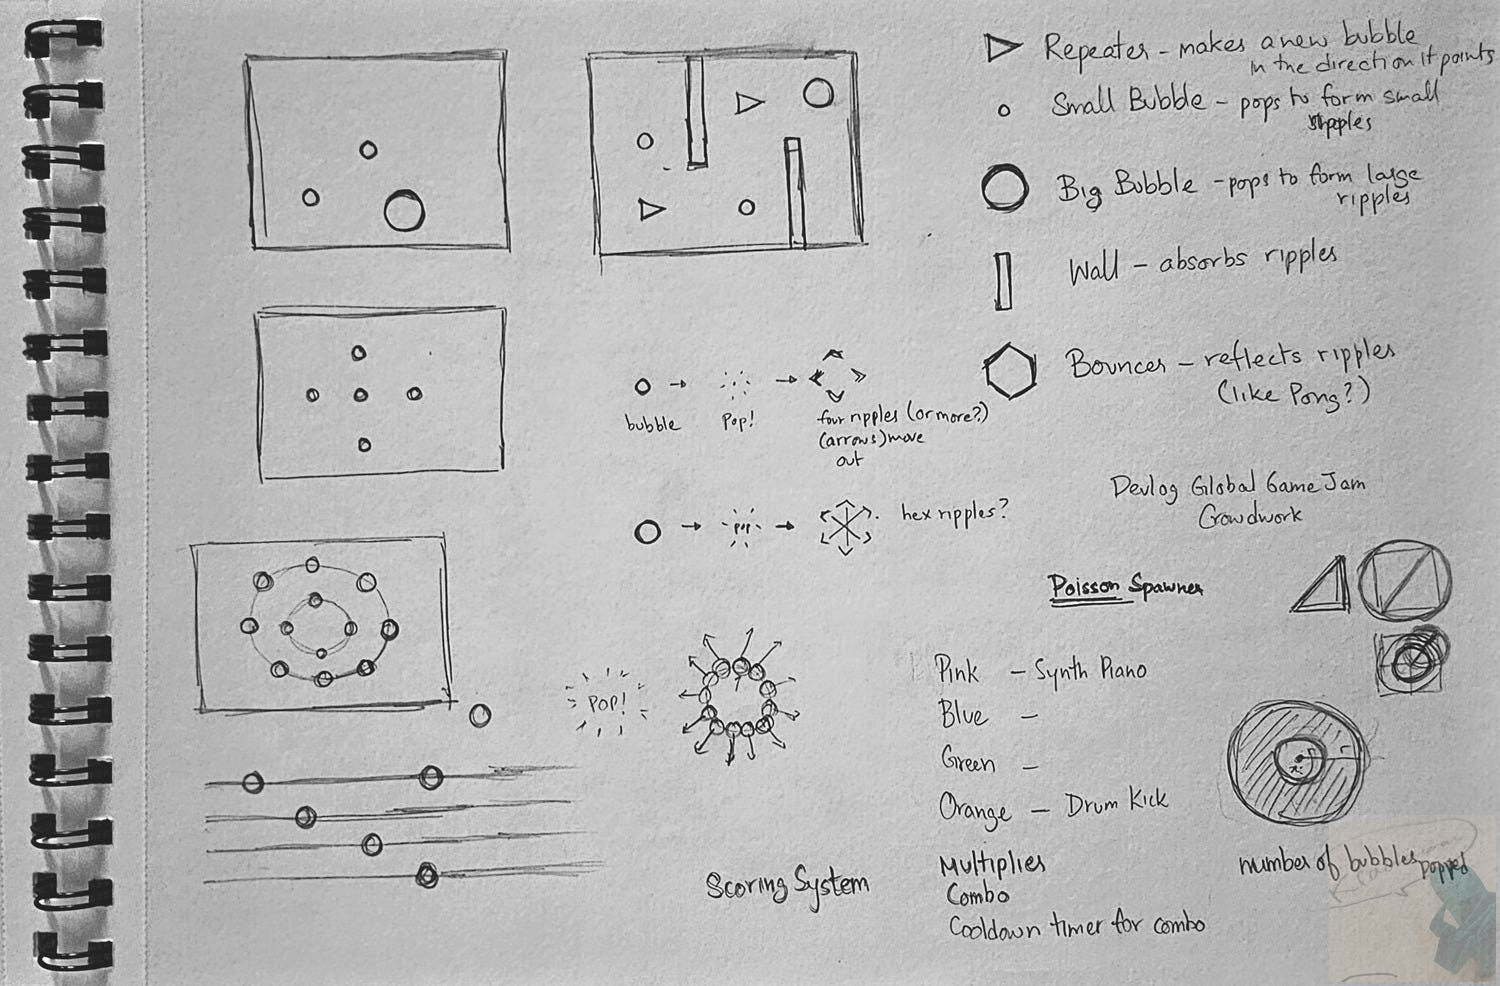 Repeater - makes a new bubble
in the direction it points
Small Bubble - pops to form small
ripples
Big Bubble - pops to form large
ripples
Wall - absorbs ripples
Bouncer - reflects ripples
(like Pong?)
bubble
Pop!
four ripples (or more?)
(arrows) move
out
pop
hex ripples?
Devlog Global Game Jam
Crowdwork
Poisson Spawner
POP!
Pink - Synth Piano
Blue -
Green -
Orange - Drum Kick
Scoring System
Multiplies
Combo
Cooldown timer for combo
number of bubbles popped